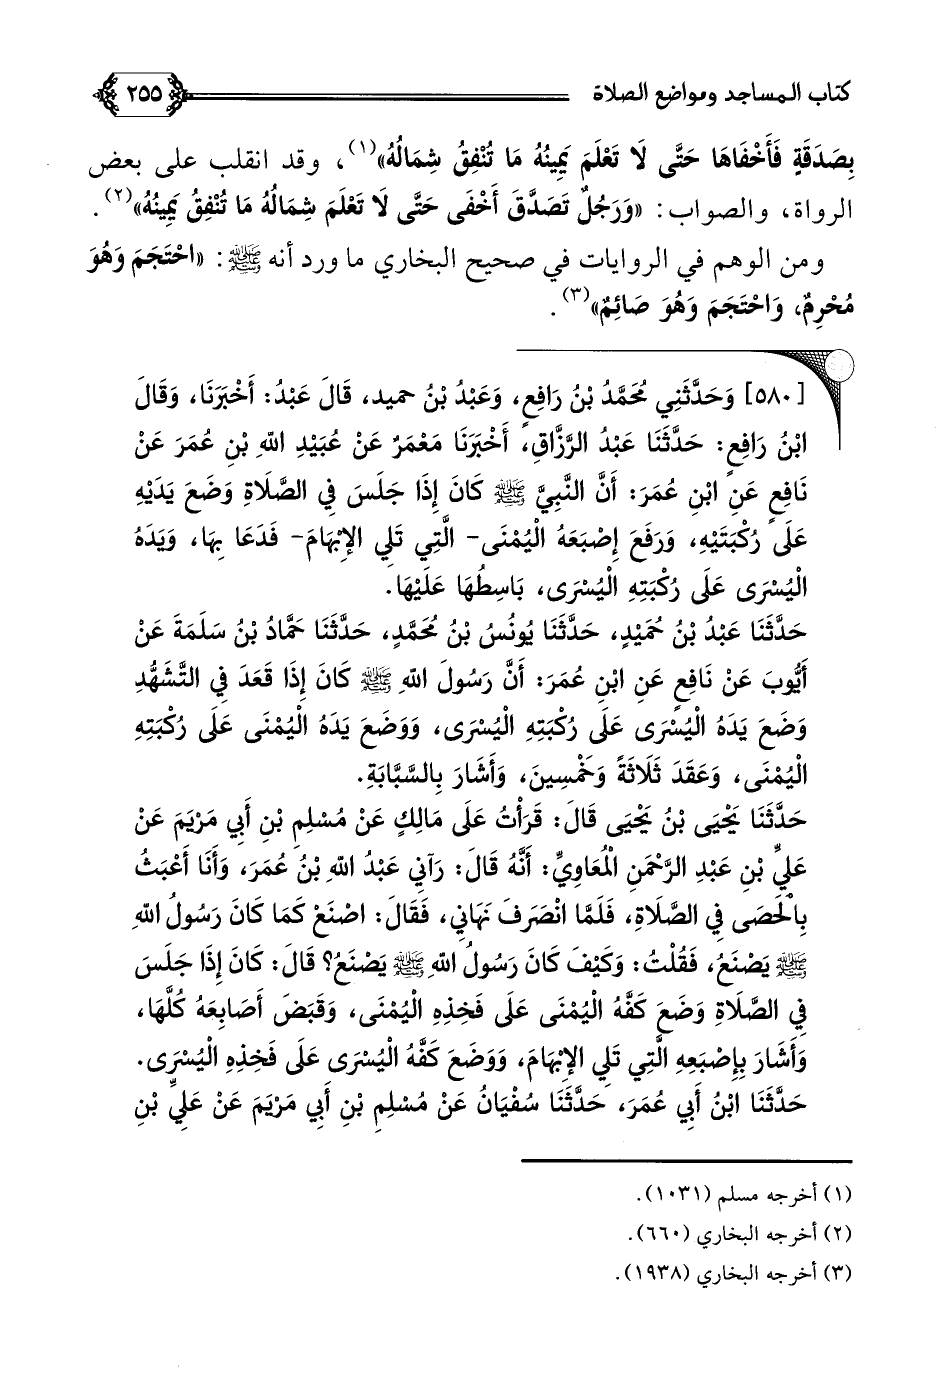 كتاب المساجد ومواضع الصلاة ٢٥٥
بِصَدَقَةٍ فَأَخْفَاهَا حَتَّى لَا تَعْلَمَ يَمِينُهُ مَا تُنْفِقُ شِمَالُهُ»(١)، وقد انقلب على بعض
الرواة، والصواب: «وَرَجُلٌ تَصَدَّقَ أَخْفَى حَتَّى لَا تَعْلَمَ شِمَالُهُ مَا تُنْفِقُ يَمِينُهُ»(٢).
ومن الوهم في الروايات في صحيح البخاري ما ورد أنه ﷺ: «احْتَجَمَ وَهُوَ
مُحْرِمٌ، وَاحْتَجَمَ وَهُوَ صَائِمٌ»(٣).
[٥٨٠] وَحَدَّثَنِي مُحَمَّدُ بْنُ رَافِعٍ، وَعَبْدُ بْنُ حميد، قَالَ عَبْدُ: أَخْبَرَنَا، وَقَالَ
ابْنُ رَافِعٍ: حَدَّثَنَا عَبْدُ الرَّزَّاقِ، أَخْبَرَنَا مَعْمَرٌ عَنْ عُبَيْدِ اللهِ بْنِ عُمَرَ عَنْ
نَافِعٍ عَنِ ابْنِ عُمَرَ: أَنَّ النَّبِيَّ ﷺ كَانَ إِذَا جَلَسَ فِي الصَّلَاةِ وَضَعَ يَدَيْهِ
عَلَى رُكْبَتَيْهِ، وَرَفَعَ إِصْبَعَهُ الْيُمْنَى- الَّتِي تَلِي الإِبْهَامَ- فَدَعَا بِهَا، وَيَدَهُ
الْيُسْرَى عَلَى رُكْبَتِهِ الْيُسْرَى، بَاسِطُهَا عَلَيْهَا.
حَدَّثَنَا عَبْدُ بْنُ حُمَيْدٍ، حَدَّثَنَا يُونُسُ بْنُ مُحَمَّدٍ، حَدَّثَنَا حَمَّادُ بْنُ سَلَمَةَ عَنْ
أَيُّوبَ عَنْ نَافِعٍ عَنِ ابْنِ عُمَرَ: أَنَّ رَسُولَ اللهِ ﷺ كَانَ إِذَا قَعَدَ فِي التَّشَهُّدِ
وَضَعَ يَدَهُ الْيُسْرَى عَلَى رُكْبَتِهِ الْيُسْرَى، وَوَضَعَ يَدَهُ الْيُمْنَى عَلَى رُكْبَتِهِ
الْيُمْنَى، وَعَقَدَ ثَلَاثَةً وَخَمْسِينَ، وَأَشَارَ بِالسَّبَّابَةِ.
حَدَّثَنَا يَحْيَى بْنُ يَحْيَى قَالَ: قَرَأْتُ عَلَى مَالِكٍ عَنْ مُسْلِمِ بْنِ أَبِي مَرْيَمَ عَنْ
عَلِيِّ بْنِ عَبْدِ الرَّحْمَنِ الْمُعَاوِيِّ: أَنَّهُ قَالَ: رَآنِي عَبْدُ اللهِ بْنُ عُمَرَ، وَأَنَا أَعْبَثُ
بِالْحَصَى فِي الصَّلَاةِ، فَلَمَّا انْصَرَفَ نَهَانِي، فَقَالَ: اصْنَعْ كَمَا كَانَ رَسُولُ اللهِ
ﷺ يَصْنَعُ، فَقُلْتُ: وَكَيْفَ كَانَ رَسُولُ اللهِ ﷺ يَصْنَعُ؟ قَالَ: كَانَ إِذَا جَلَسَ
فِي الصَّلَاةِ وَضَعَ كَفَّهُ الْيُمْنَى عَلَى فَخِذِهِ الْيُمْنَى، وَقَبَضَ أَصَابِعَهُ كُلَّهَا،
وَأَشَارَ بِإِصْبَعِهِ الَّتِي تَلِي الإِبْهَامَ، وَوَضَعَ كَفَّهُ الْيُسْرَى عَلَى فَخِذِهِ الْيُسْرَى.
حَدَّثَنَا ابْنُ أَبِي عُمَرَ، حَدَّثَنَا سُفْيَانُ عَنْ مُسْلِمِ بْنِ أَبِي مَرْيَمَ عَنْ عَلِيِّ بْنِ
(١) أخرجه مسلم (١٠٣١).
(٢) أخرجه البخاري (٦٦٠).
(٣) أخرجه البخاري (١٩٣٨).